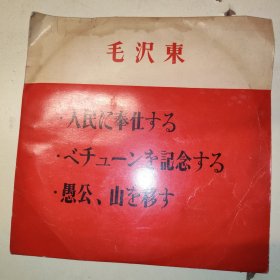 毛沢東
・人民に奉仕する
・ベチューンを記念する
・愚公、山を移す